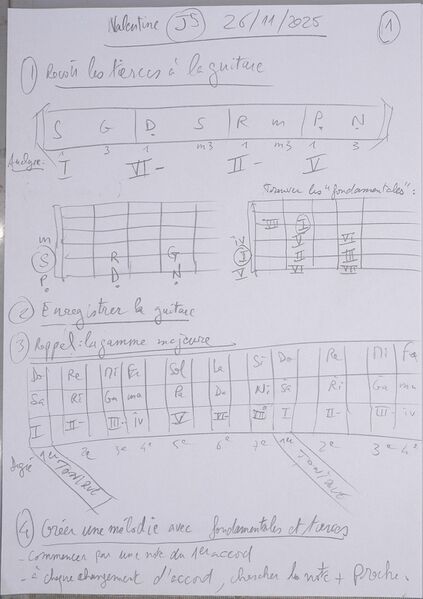 Valentine JS 26/11/2025
1
① Revoir les tierces à la guitare
S G D S R m P N
1 3 1 m3 1 m3 1 3
Analyse: I VI- II- V
Trouver les "fondamentales":
m
S
P
R G
D N
iv III I
I V VI
V VI VII
② Enregistrer la guitare
③ Rappel: la gamme majeure
Do Re Mi Fa Sol La Si Do Re Mi Fa
Sa Ri Ga ma Pa Da Ni Sa Ri Ga ma
I II- III- iv V VI- VII I II- III- iv
Degré 1er 2e 3e 4e 5e 6e 7e 1er 2e 3e 4e
TONIQUE TONIQUE
④ Créer une mélodie avec fondamentales et tierces
- commencer par une note du 1er accord
- à chaque changement d'accord, chercher la note + proche.